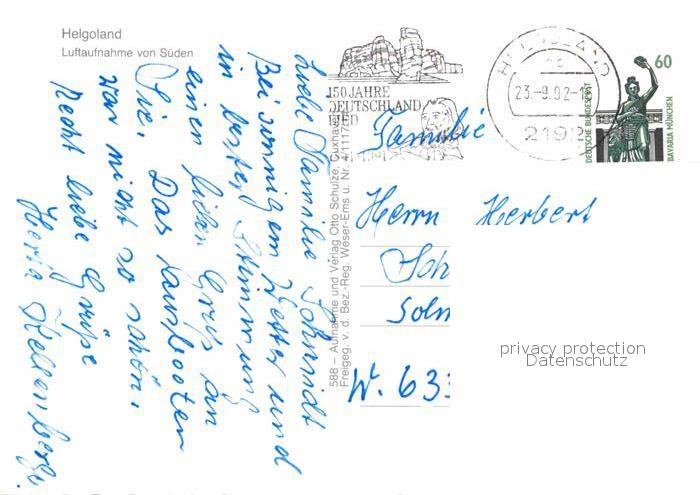 Helgoland
Luftaufnahme von Süden
Liebe Familie Schmidt
Bei sonnigem Wetter und
in bester Stimmung
einen lieben Gruß an
Sie. Das Ausbooten
war nicht so schön.
Recht liebe Grüße
Herta
588 – Aufnahme und Verlag Otto Schulze, Cuxhaven
Freigeg. v. d. Bez.-Reg. Weser-Ems u. Nr. 4/1117
150 JAHRE
DEUTSCHLAND
LIED
HELGOLAND
23.-9.92-1
2192
60
DEUTSCHE BUNDESPOST
BAVARIA MÜNCHEN
Familie
Herrn Herbert
Sch
Solm
W. 633
privacy protection
Datenschutz